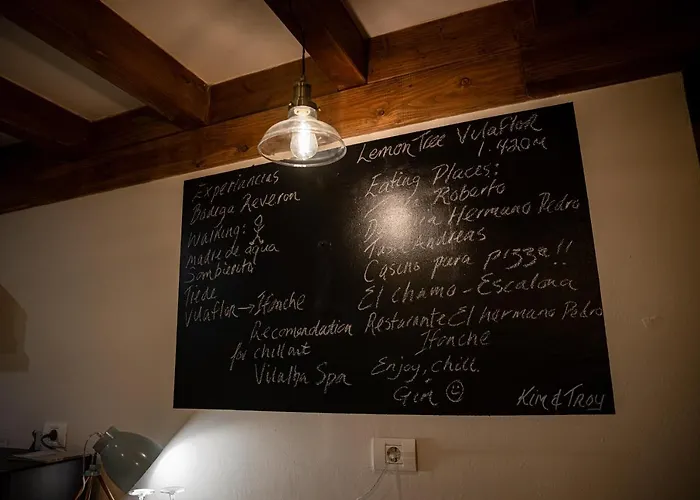 Lemon Tree Vilaflor
1.420m
Experiancias
Bodega Reveron
Walking:
Madre de agua
Sombierito
Tiede
Vilaflor → Ifonche
Recomendation
for chill out
Vilalba Spa
Eating Places:
Roberto
Hermano Pedro
Tasca Andreas
Casino para pizza!!
El Chamo - Escalona
Restaurante El hermano Pedro
Ifonche
Enjoy, chill.
Gin ☺
Kim & Troy